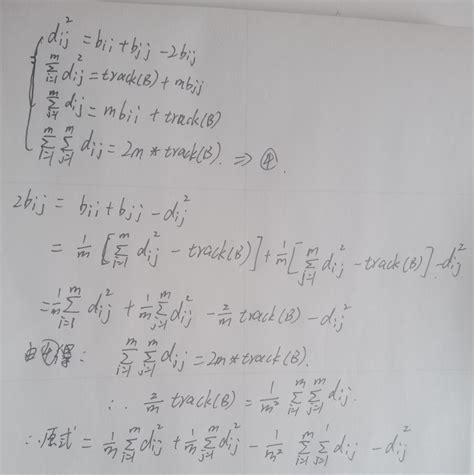 d_{ij}^2 = b_{ii} + b_{jj} - 2b_{ij}
\sum_{i=1}^{m} d_{ij}^2 = track(B) + m b_{jj}
\sum_{j=1}^{m} d_{ij} = m b_{ii} + track(B)
\sum_{i=1}^{m} \sum_{j=1}^{m} d_{ij} = 2m * track(B). ⇒ ④.
2b_{ij} = b_{ii} + b_{jj} - d_{ij}^2
= \frac{1}{m} [\sum_{i=1}^{m} d_{ij}^2 - track(B)] + \frac{1}{m} [\sum_{j=1}^{m} d_{ij}^2 - track(B)] - d_{ij}^2
= \frac{1}{m} \sum_{i=1}^{m} d_{ij}^2 + \frac{1}{m} \sum_{j=1}^{m} d_{ij}^2 - \frac{2}{m} track(B) - d_{ij}^2
由④得: \sum_{i=1}^{m} \sum_{j=1}^{m} d_{ij} = 2m * track(B).
∴ \frac{2}{m} track(B) = \frac{1}{m^2} \sum_{i=1}^{m} \sum_{j=1}^{m} d_{ij}.
∴原式 = \frac{1}{m} \sum_{i=1}^{m} d_{ij}^2 + \frac{1}{m} \sum_{j=1}^{m} d_{ij}^2 - \frac{1}{m^2} \sum_{i=1} \sum_{j=1} d_{ij} - d_{ij}^2